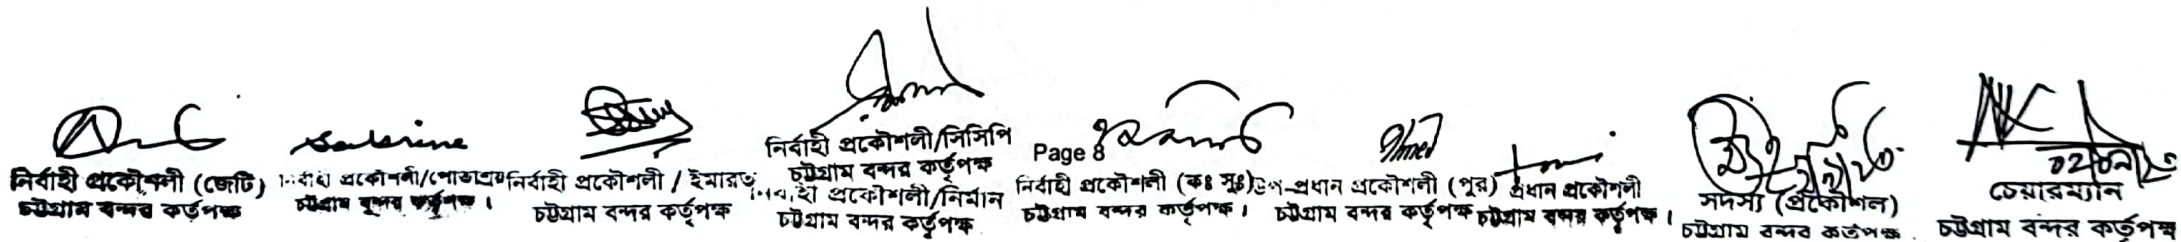 নির্বাহী প্রকৌশলী (জেটি)
চট্টগ্রাম বন্দর কর্তৃপক্ষ
Sabrina
নির্বাহী প্রকৌশলী/পোতাশ্রয়
চট্টগ্রাম বন্দর কর্তৃপক্ষ।
নির্বাহী প্রকৌশলী / ইমারত
চট্টগ্রাম বন্দর কর্তৃপক্ষ
নির্বাহী প্রকৌশলী/সিসিপি
চট্টগ্রাম বন্দর কর্তৃপক্ষ
নির্বাহী প্রকৌশলী/নির্মান
চট্টগ্রাম বন্দর কর্তৃপক্ষ
Page 8
নির্বাহী প্রকৌশলী (কঃ সুঃ)
চট্টগ্রাম বন্দর কর্তৃপক্ষ।
Ahmed
উপ-প্রধান প্রকৌশলী (পুর)
চট্টগ্রাম বন্দর কর্তৃপক্ষ
প্রধান প্রকৌশলী
চট্টগ্রাম বন্দর কর্তৃপক্ষ।
সদস্য (প্রকৌশল)
চট্টগ্রাম বন্দর কর্তৃপক্ষ
চেয়ারম্যান
চট্টগ্রাম বন্দর কর্তৃপক্ষ